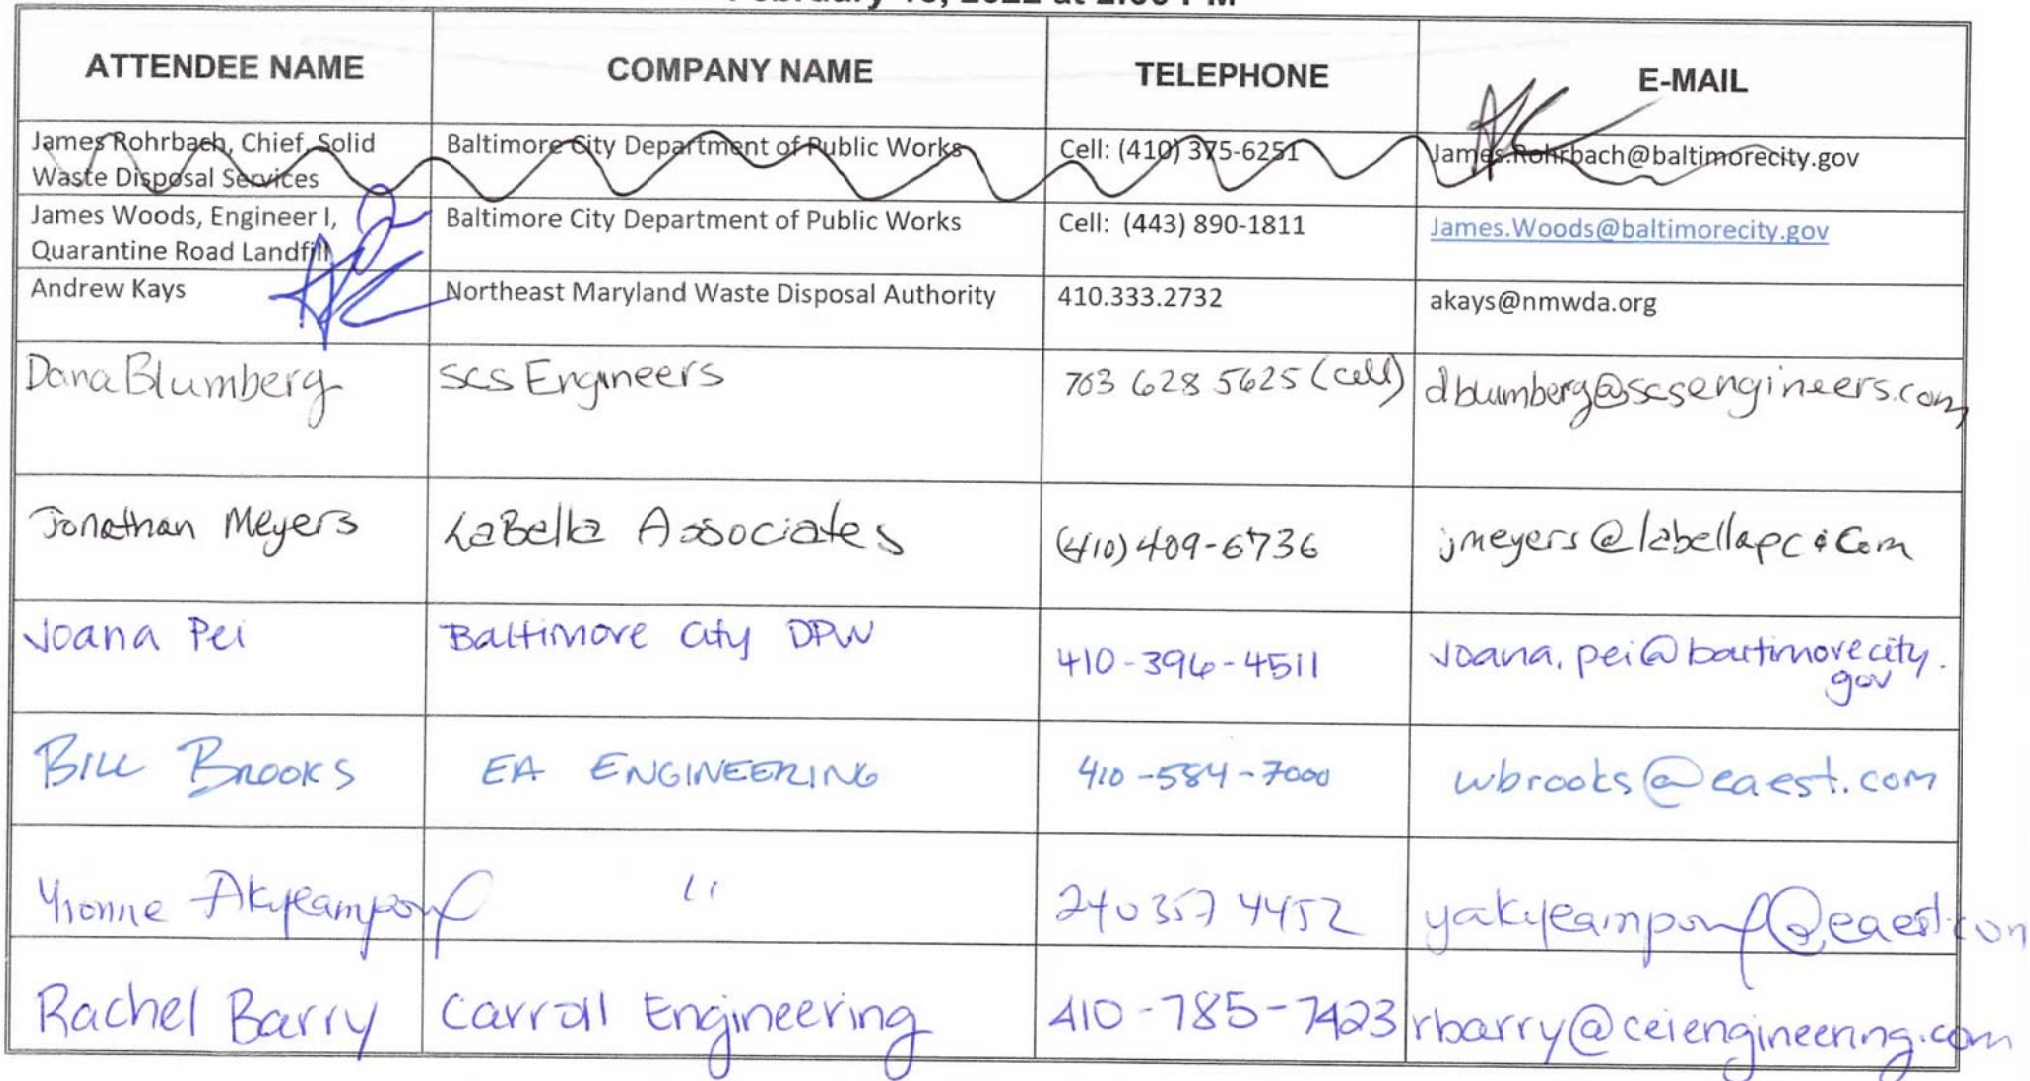 ATTENDEE NAME COMPANY NAME TELEPHONE E-MAIL
James Rohrbach, Chief, Solid Baltimore City Department of Public Works Cell: (410) 375-6251 James.Rohrbach@baltimorecity.gov
Waste Disposal Services
James Woods, Engineer I, Baltimore City Department of Public Works Cell: (443) 890-1811 James.Woods@baltimorecity.gov
Quarantine Road Landfill
Andrew Kays Northeast Maryland Waste Disposal Authority 410.333.2732 akays@nmwda.org
Dana Blumberg SCS Engineers 703 628 5625 (cell) dblumberg@scsengineers.com
Jonathan Meyers LaBella Associates (410) 409-6736 jmeyers@labellapc.com
Joana Pei Baltimore City DPW 410-396-4511 joana.pei@baltimorecity.
gov
BILL BROOKS EA ENGINEERING 410-584-7000 wbrooks@eaest.com
Yvonne Akyeampong " 240 357 4452 yakyeampong@eaest.com
Rachel Barry Carroll Engineering 410-785-7423 rbarry@ceiengineering.com